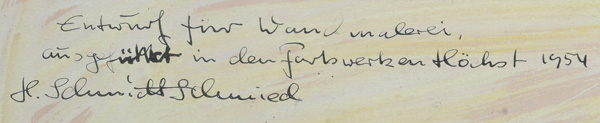 Entwurf für Wandmalerei,
ausgeführt in den Farbwerken Höchst 1954
H. Schmidt Schmied